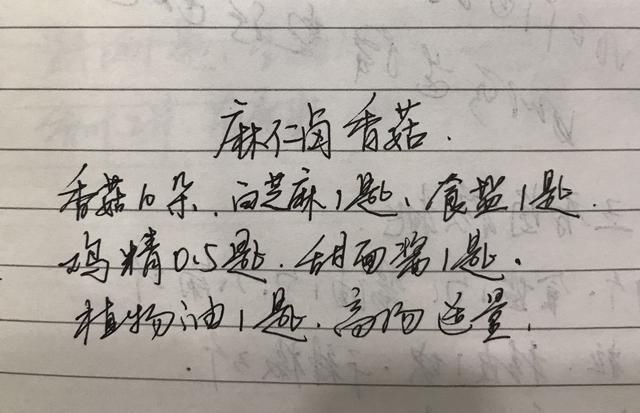 麻仁卤香菇.
香菇10朵、白芝麻1匙、食盐1匙.
鸡精0.5匙.甜面酱1匙、
植物油1匙.高汤适量.